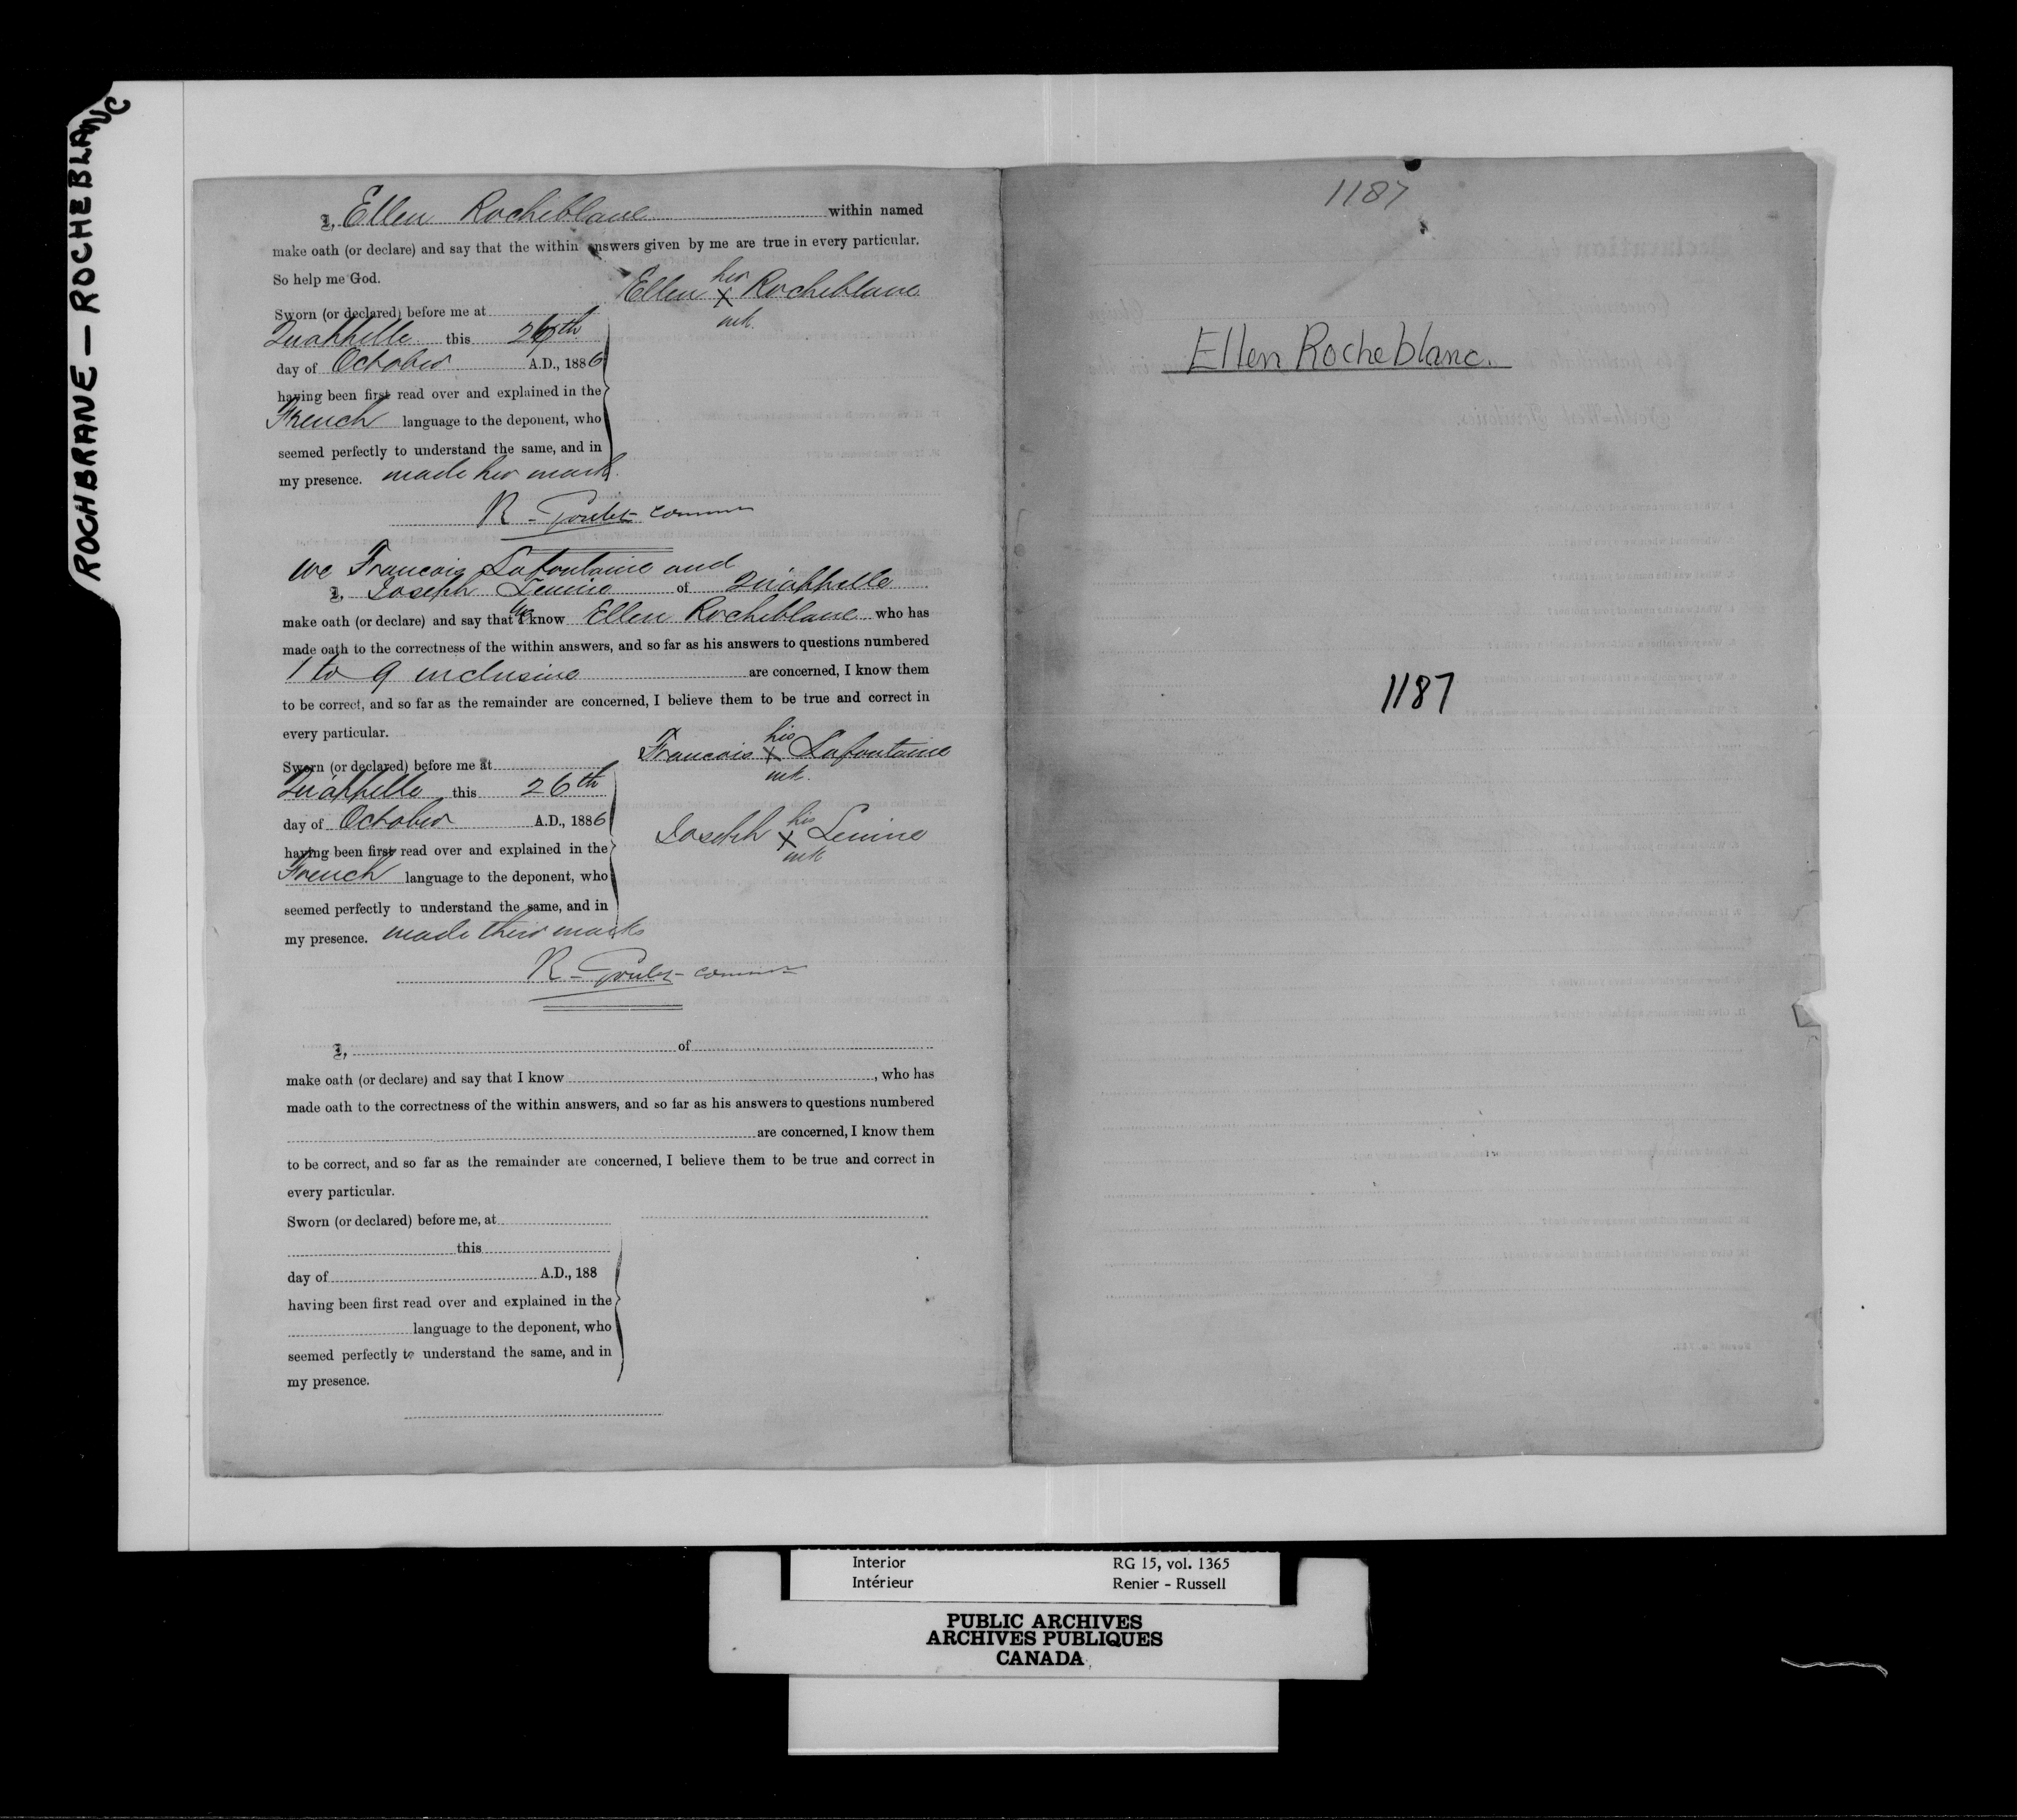 ROCHBRANE — ROCHEBLANC
I, Ellen Rocheblanc within named
make oath (or declare) and say that the within answers given by me are true in every particular.
So help me God.
Ellen her X mk. Rocheblanc
Sworn (or declared) before me at
Qu'appelle this 26th
day of October A.D., 1886
having been first read over and explained in the
French language to the deponent, who
seemed perfectly to understand the same, and in
my presence. made her mark.
R. Goulet
we Francois Lafontaine and
I, Joseph of Qu'appelle
make oath (or declare) and say that we know Ellen Rocheblanc who has
made oath to the correctness of the within answers, and so far as his answers to questions numbered
1 to 9 inclusive are concerned, I know them
to be correct, and so far as the remainder are concerned, I believe them to be true and correct in
every particular.
Francois his X mk. Lafontaine
Sworn (or declared) before me at
Qu'appelle this 26th
day of October A.D., 1886
Joseph his X mk
having been first read over and explained in the
French language to the deponent, who
seemed perfectly to understand the same, and in
my presence. made their marks
R. Goulet
I, of
make oath (or declare) and say that I know , who has
made oath to the correctness of the within answers, and so far as his answers to questions numbered
are concerned, I know them
to be correct, and so far as the remainder are concerned, I believe them to be true and correct in
every particular.
Sworn (or declared) before me, at
this
day of A.D., 188
having been first read over and explained in the
language to the deponent, who
seemed perfectly to understand the same, and in
my presence.
1187
Ellen Rocheblanc.
1187
Interior RG 15, vol. 1365
Intérieur Renier - Russell
PUBLIC ARCHIVES
ARCHIVES PUBLIQUES
CANADA